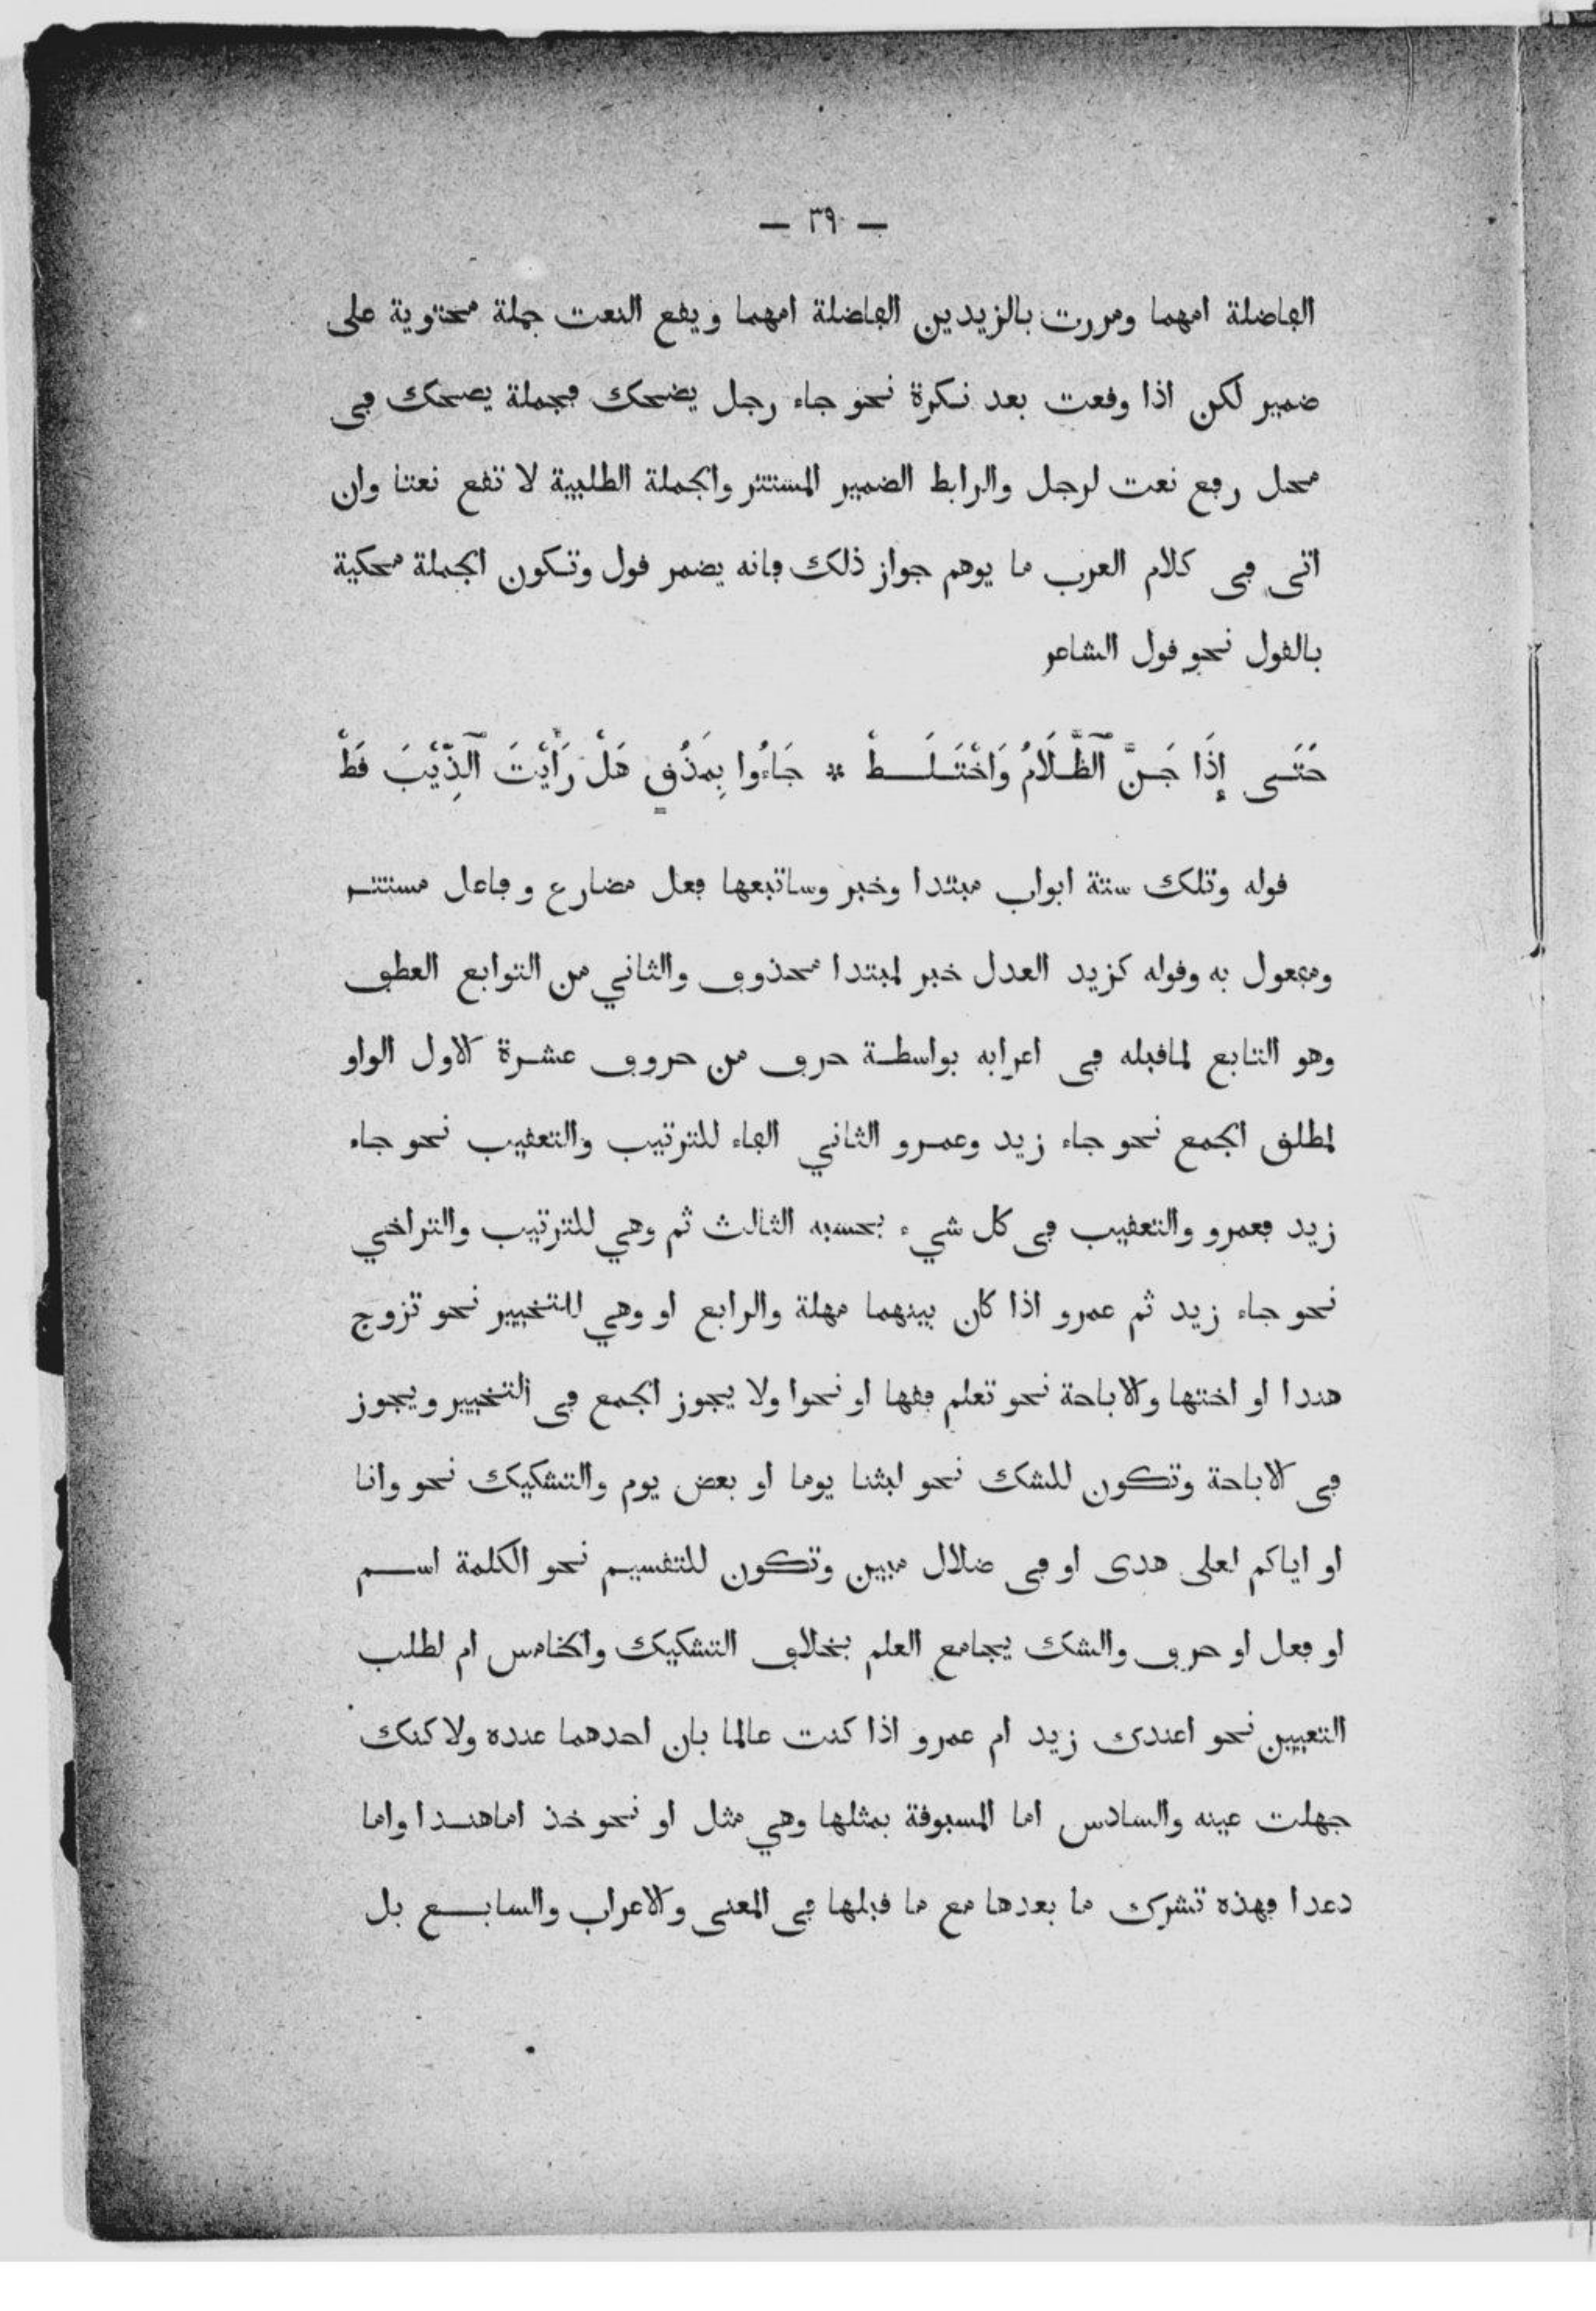 — ٣٩ —
الفاضلة امهما ومررت بالزيدين الفاضلة امهما ويقع النعت جملة محتوية على
ضمير لكن اذا وقعت بعد نكرة نحو جاء رجل يضحك فجملة يضحك في
محل رفع نعت لرجل والرابط الضمير المستتر والجملة الطلبية لا تقع نعتا وان
اتى في كلام العرب ما يوهم جواز ذلك فانه يضمر قول وتكون الجملة محكية
بالقول نحو قول الشاعر
حَتَّى إِذَا جَنَّ ٱلظَّلَامُ وَاخْتَلَطْ * جَاءُوا بِمَذْقٍ هَلْ رَأَيْتَ ٱلذِّيْبَ قَطْ
قوله وتلك ستة ابواب مبتدا وخبر وساتبعها فعل مضارع وفاعل مستتر
ومفعول به وقوله كزيد العدل خبر لمبتدا محذوف والثاني من التوابع العطف
وهو التابع لماقبله في اعرابه بواسطة حرف من حروف عشرة الاول الواو
لمطلق الجمع نحو جاء زيد وعمرو الثاني الفاء للترتيب والتعقيب نحو جاء
زيد فعمرو والتعقيب في كل شيء بحسبه الثالث ثم وهي للترتيب والتراخي
نحو جاء زيد ثم عمرو اذا كان بينهما مهلة والرابع او وهي للتخيير نحو تزوج
هندا او اختها والاباحة نحو تعلم فقها او نحوا ولا يجوز الجمع في التخيير ويجوز
في الاباحة وتكون للشك نحو لبثنا يوما او بعض يوم والتشكيك نحو وانا
او اياكم لعلى هدى او في ضلال مبين وتكون للتقسيم نحو الكلمة اسم
او فعل او حرف والشك يجامع العلم بخلاف التشكيك والخامس ام لطلب
التعيين نحو اعندك زيد ام عمرو اذا كنت عالما بان احدهما عنده ولاكنك
جهلت عينه والسادس اما المسبوقة بمثلها وهي مثل او نحو خذ اماهندا واما
دعدا فهذه تشرك ما بعدها مع ما قبلها في المعنى والاعراب والسابع بل